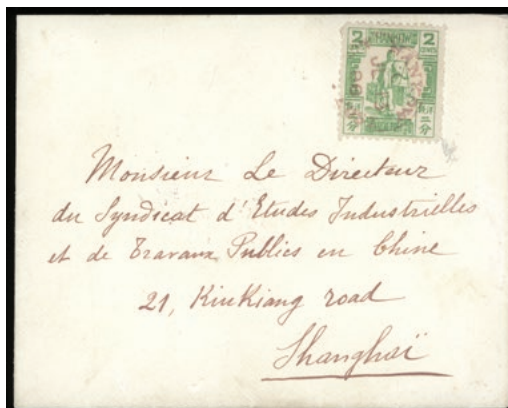 HANKOW
2 2
Monsieur Le Directeur
du Syndicat d'Etudes Industrielles
et de Travaux Publics en Chine
21, KiuKiang road
Shanghaï